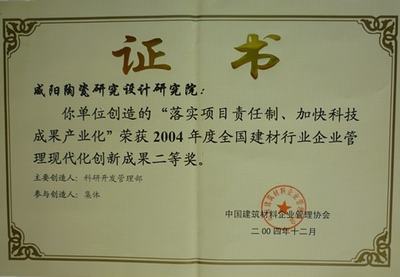 证书
咸阳陶瓷研究设计研究院：
你单位创造的“落实项目责任制、加快科技
成果产业化”荣获2004年度全国建材行业企业管
理现代化创新成果二等奖。
主要创造人：科研开发管理部
参与创造人：集体
中国建筑材料企业管理协会
二00四年十二月